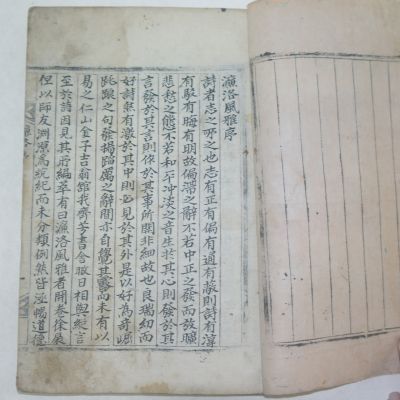 濂洛風雅序
詩者志之所之也志有正有偏有通有蔽則詩有淳
有駁有晦有明故偏滯之辭不若中正之發而放曠
悲愁之態不若和平冲淡之音生於其心則發於其
言發於其言則作於其事所關非細故也良瑞幼而
好詩有激於其中則必見於其外是以好為奇崛
跳踉之句發揚蹈厲之辭間亦自覺其而未有以
易之仁山金子吉翁館我齊芳書舍暇日相與縱言
至於詩因見其所編萃有曰濂洛風雅者開卷徐展
但以師友淵源為統紀而未分類例然皆涵暢道德